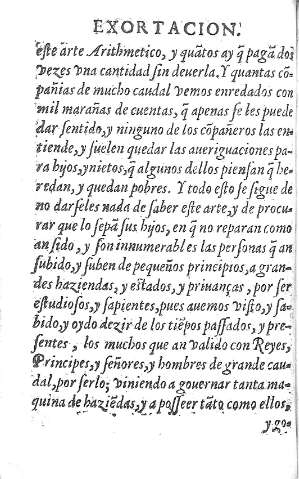 EXORTACION.
este arte Arithmetico, y quãtos ay q̃ pagã dos
vezes vna cantidad sin deuerla. Y quantas cõ-
pañias de mucho caudal vemos enredados con
mil marañas de cuentas, q̃ apenas se les puede
dar sentido, y ninguno de los cõpañeros las en-
tiende, y suelen quedar las aueriguaciones pa-
ra hijos, y nietos, q̃ algunos dellos piensan q̃ he-
redan, y quedan pobres. Y todo esto se sigue de
no darseles nada de saber este arte, y de procu-
rar que lo sepã sus hijos, en q̃ no reparan como
an sido, y son innumerables las personas q̃ an
subido, y suben de pequeños principios, a gran-
des haziendas, y estados, y priuanças, por ser
estudiosos, y sapientes, pues auemos visto, y sa-
bido, y oydo dezir de los tiẽpos passados, y pre-
sentes, los muchos que an valido con Reyes,
Principes, y señores, y hombres de grande cau-
dal, por serlo; viniendo a gouernar tanta ma-
quina de haziẽdas, y a posseer tãto como ellos,